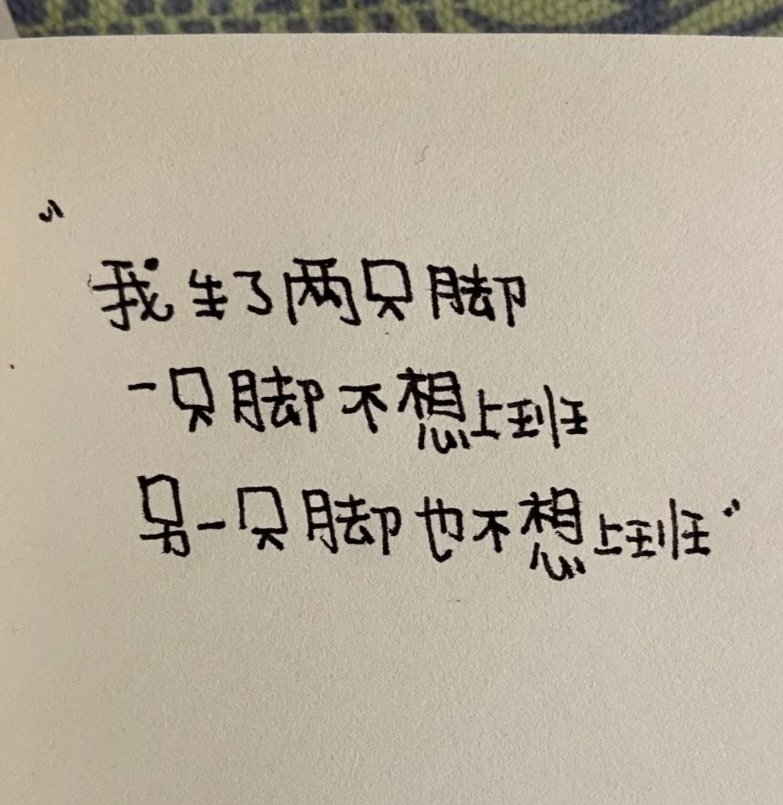 “我生了两只脚
一只脚不想上班
另一只脚也不想上班”